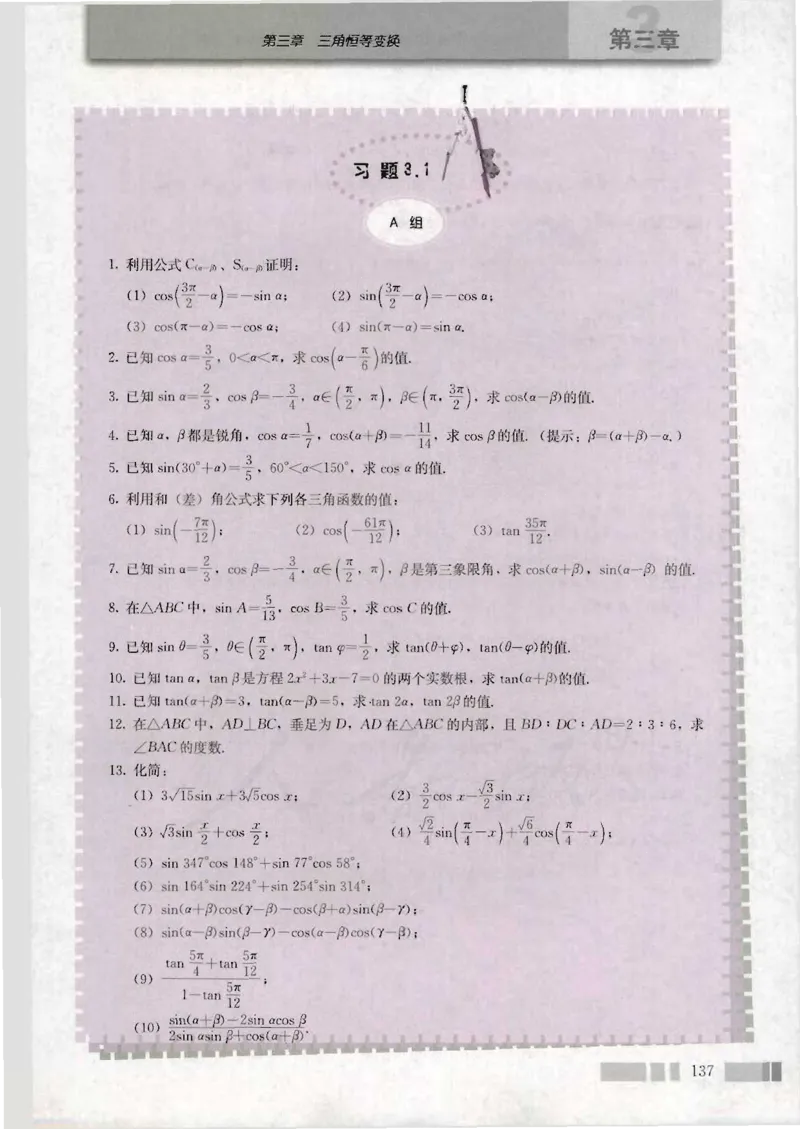 第三章 三角恒等变换
第三章
习题3.1
A 组
1. 利用公式 C(α-β)、S(α-β)证明:
(1) cos(3π/2-α)=-sin α; (2) sin(3π/2-α)=-cos α;
(3) cos(π-α)=-cos α; (4) sin(π-α)=sin α.
2. 已知 cos α=3/5, 0<α<π, 求 cos(α-π/6)的值.
3. 已知 sin α=2/3, cos β=-3/4, α∈(π/2, π), β∈(π, 3π/2), 求 cos(α-β)的值.
4. 已知 α, β都是锐角, cos α=1/7, cos(α+β)=-11/14, 求 cos β的值. (提示: β=(α+β)-α.)
5. 已知 sin(30°+α)=3/5, 60°<α<150°, 求 cos α 的值.
6. 利用和(差)角公式求下列各三角函数的值:
(1) sin(-7π/12); (2) cos(-61π/12); (3) tan 35π/12.
7. 已知 sin α=2/3, cos β=-3/4, α∈(π/2, π), β是第三象限角, 求 cos(α+β), sin(α-β) 的值.
8. 在△ABC 中, sin A=5/13, cos B=3/5, 求 cos C 的值.
9. 已知 sin θ=3/5, θ∈(π/2, π), tan φ=1/2, 求 tan(θ+φ), tan(θ-φ)的值.
10. 已知 tan α, tan β是方程 2x²+3x-7=0 的两个实数根, 求 tan(α+β)的值.
11. 已知 tan(α+β)=3, tan(α-β)=5, 求 tan 2α, tan 2β的值.
12. 在△ABC 中, AD⊥BC, 垂足为 D, AD 在△ABC 的内部, 且 BD:DC:AD=2:3:6, 求
∠BAC 的度数.
13. 化简:
(1) 3√15sin x+3√5cos x; (2) 3/2cos x-√3/2sin x;
(3) √3sin x/2+cos x/2; (4) √2/4sin(π/4-x)+√6/4cos(π/4-x);
(5) sin 347°cos 148°+sin 77°cos 58°;
(6) sin 164°sin 224°+sin 254°sin 314°;
(7) sin(α+β)cos(γ-β)-cos(β+α)sin(β-γ);
(8) sin(α-β)sin(β-γ)-cos(α-β)cos(γ-β);
(9) (tan 5π/4+tan 5π/12)/(1-tan 5π/12);
(10) (sin(α+β)-2sin αcos β)/(2sin αsin β+cos(α+β)).
137